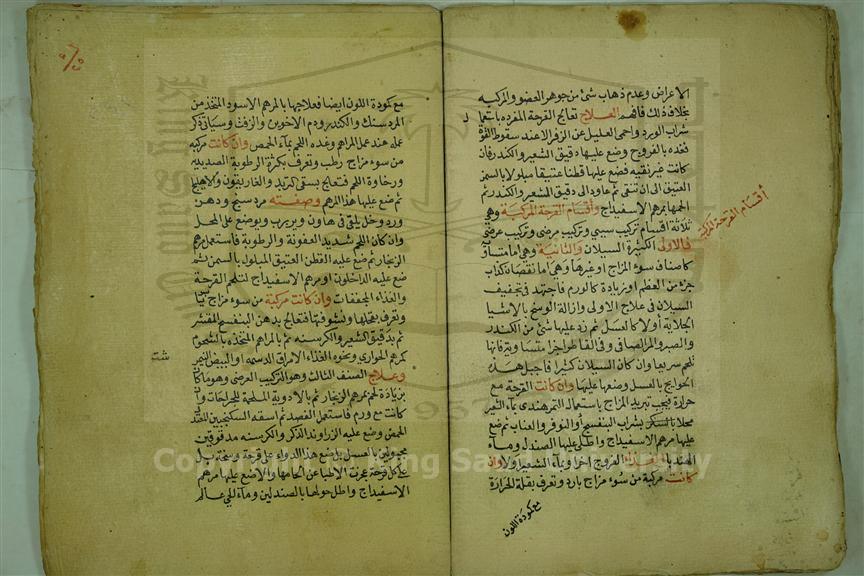 الاعراض وعدم ذهاب شئ من جوهر العضو والمركبه
بخلاف ذلك فافهم العلاج تعالج القرحة المفرده باستعما ل
شراب الورد واحمى العليل عن الزفر الا عند سقوط القوة
فغذه بالفروج وضع عليها دقيق الشعير والكندر فان
كانت غير نقيه فضع عليها قطنا عتيقا مبلولا بالسمن
العتيق الى ان تنقى ثم عاود الى دقيق الشعير والكندر ثم
الحمها بمرهم الاسفيداج واقسام القرحة المركبة وهى
ثلاثة اقسام تركيب سببي وتركيب مرضى وتركيب عرضى
فالاولى الكثيرة السيلان والثانية وهى اما
كاصناف سوء المزاج او غيرها وهى اما نقصان كذهاب
جزء من العظم او زيادة كالورم فاجتهد فى تجفيف
السيلان فى علاج الاولى وازالة الوسخ بالاشيا
الجلاية اولا كالعسل ثم زد عليها شئ من الكندر
والصبر والمر الصافى و
تلحم سريعا وان كان السيلان كثيرا فاجبل هذه
الحوايج بالعسل وضعها عليها وان كانت القرحة مع
حرارة فيجب تبريد المزاج باستعمال التمرهندى بماء الشعير
محلا بالسكر بشراب البنفسج او النوفر والعناب ثم ضع
عليها مرهم الاسفيداج واطلى عليها الصندل وماء
الهندبا الفروج اخرا وبماء الشعير اولا وان
كانت مركبة من سوء مزاج بارد وتعرف بقلة الحرارة
مع كمودة اللون
اقسام القرحة المركبة
مع كمودة اللون ايضا فعلاجها بالمرهم الاسود المتخذ من
المردسنك والكندر ودم الاخوين والزفت وسياتى ذكر
عمله عند عمل المراهم وغذه اللحم بماء الحمص وان كانت مركبة
من سوء مزاج رطب وتعرف بكثرة الرطوبة الصديديه
ورخاوة اللحم فتعالج بسقى التربد والغاريقون والاهليلج
ثم ضع عليها هذا المرهم وصفته مردسنج ودهن
ورد وخل يلقى فى هاون ويربب ويوضع على المحل
وان كان اللحم شديد العفونة والرطوبة فاستعمل مرهم
الزنجار ثم ضع عليه القطن العتيق المبلول بالسمن ثم
ضع عليه الداخلون او مرهم الاسفيداج لتلحم القرحة
والغذاء المجففات وان كانت مركبة من سوء مزاج
وتعرف بقحلها ونشوفتها فتعالج بدهن البنفسج المفتر
ثم بدقيق الشعير والكرسنه ثم بالمراهم المتخذة بالشحوم
كمرهم الحوارى ونحوه الغذاء الامراق الدسمه والبيض
وعلاج الصنف الثالث وهو التركيب العرضى وهو ما كا
بزيادة لحم بمرهم الزنجار ثم بالادوية الملحمة للجراحات وا
كانت مع ورم فاستعمل الفصد ثم اسقه السكنجبين
الحمص وضع عليه الزراوند الذكر والكرسنه مدقوقين
مجبولين بالعسل بل ضع هذا الدواء على قرحة وسخة بل
على كل قرحة عجزت الاطبا عن الحامها والا ضع عليها مرهم
الاسفيداج واطل حولها بالصندلين وماء حى عالم
Copyright © King Saud University